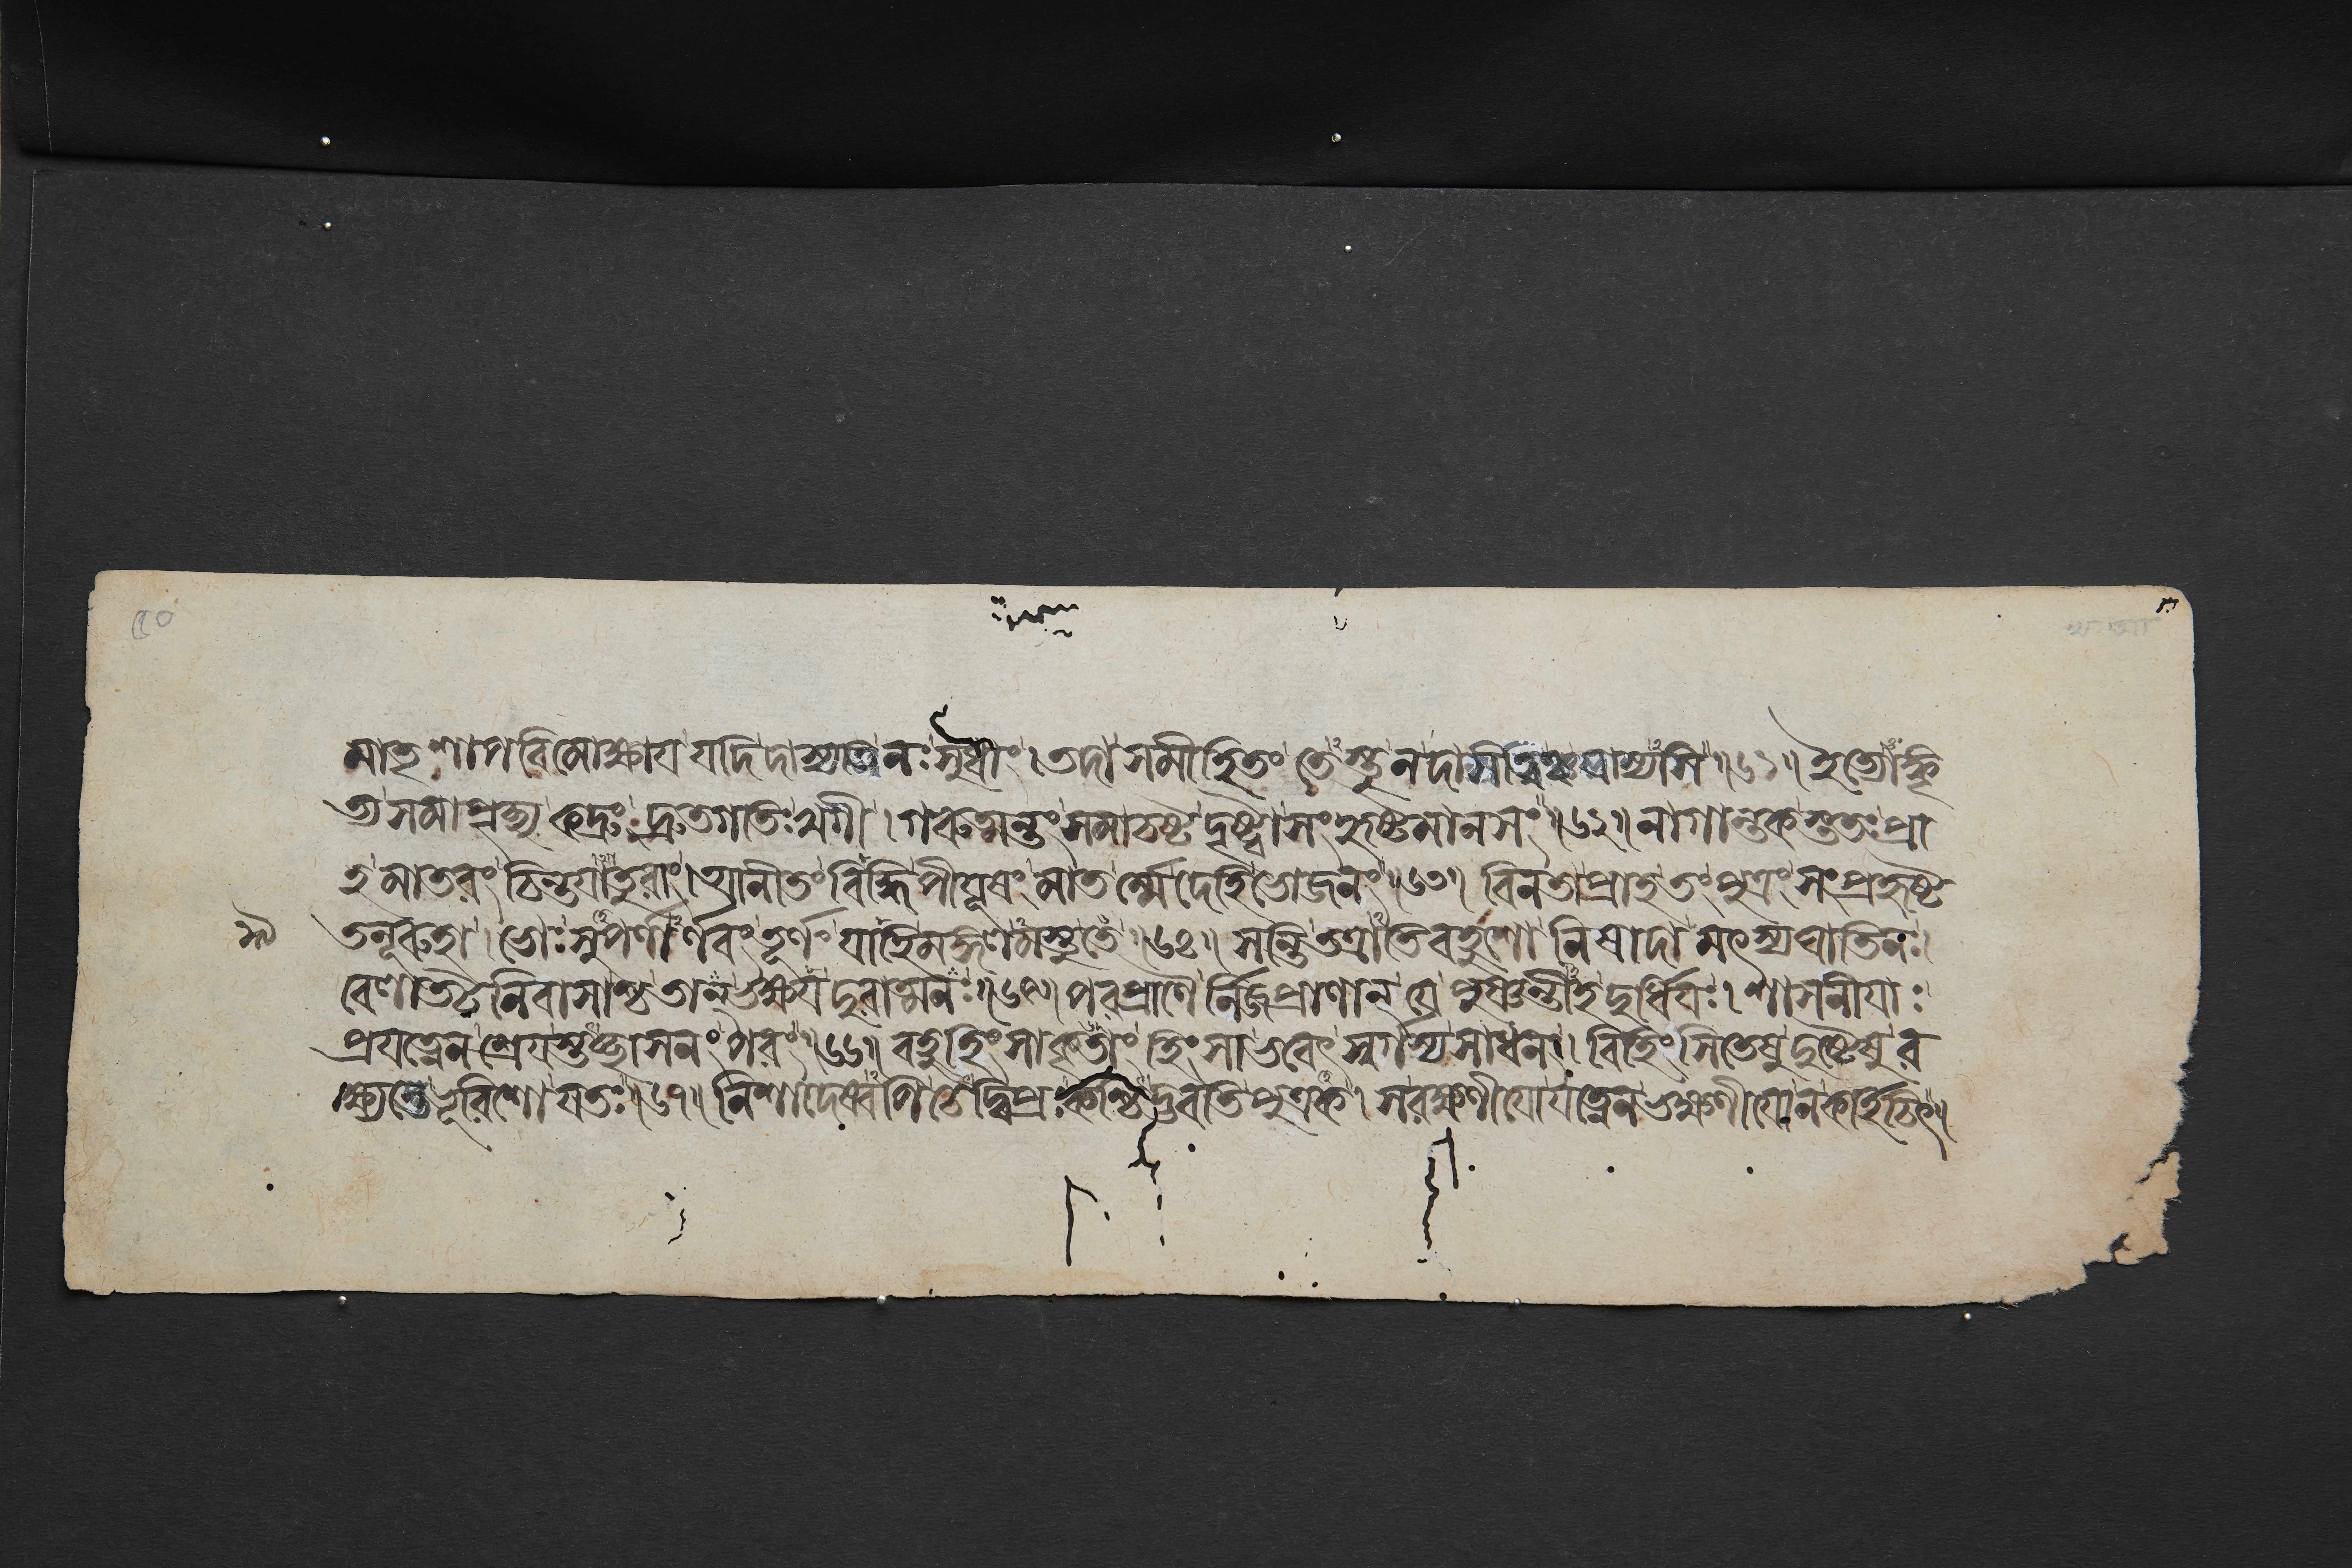 ৫০
মাতৃশাপবিমোক্ষায যদি দাস্যতি নঃ সুধাং। তদা সমীহিতং তেস্তু ন দাসীত্বঞ্চ যাস্যসি॥৬১॥ ইত্যোঙ্কৃ
ত্য সমাপৃচ্ছ্য কদ্রুং দ্রুতগতিঃ খগী। গরুত্মন্তং সমাচষ্ট দৃষ্ট্বা সংহৃষ্টমানসং॥৬২॥ নাগান্তকস্ততঃ প্রা
হ মাতরং চিন্তযাতুরাং। আনীতং বিদ্ধি পীযূষং মাতর্ম্মে দেহি ভোজনং॥৬৩॥ বিনতা প্রাহ তং পুত্রং সংপ্রহৃষ্ট
তনূরুহা। ভোঃ সুপর্ণার্ণবং তূর্ণং যাহি মঙ্গলমস্তু তে॥৬৪॥ সন্তি তত্রাতিবহুশো নিষাদা মৎস্যঘাতিনঃ।
বেলাতটনিবাসাশ্চ তান্ ভক্ষয দুরাত্মনঃ॥৬৫॥ পরপ্রাণৈর্নিজপ্রাণান্ যে পুষ্ণন্তীহ দুর্ধিযঃ। শাসনীযাঃ
প্রযত্নেন শ্রেযস্তচ্ছাসনং পরং॥৬৬॥ বহুহিংসাকৃতাং হিংসা ভবেৎ স্বর্গস্য সাধনং। বিহিংসিতেষু দুষ্টেষু র
ক্ষ্যন্তে ভূরিশো যতঃ॥৬৭॥ নিশাদেষ্বপি চেদ্বিপ্রঃ কশ্চিদ্ভবতি পুত্রক। সরক্ষণীযো যত্নেন ভক্ষণীযো ন কর্হিচিৎ॥